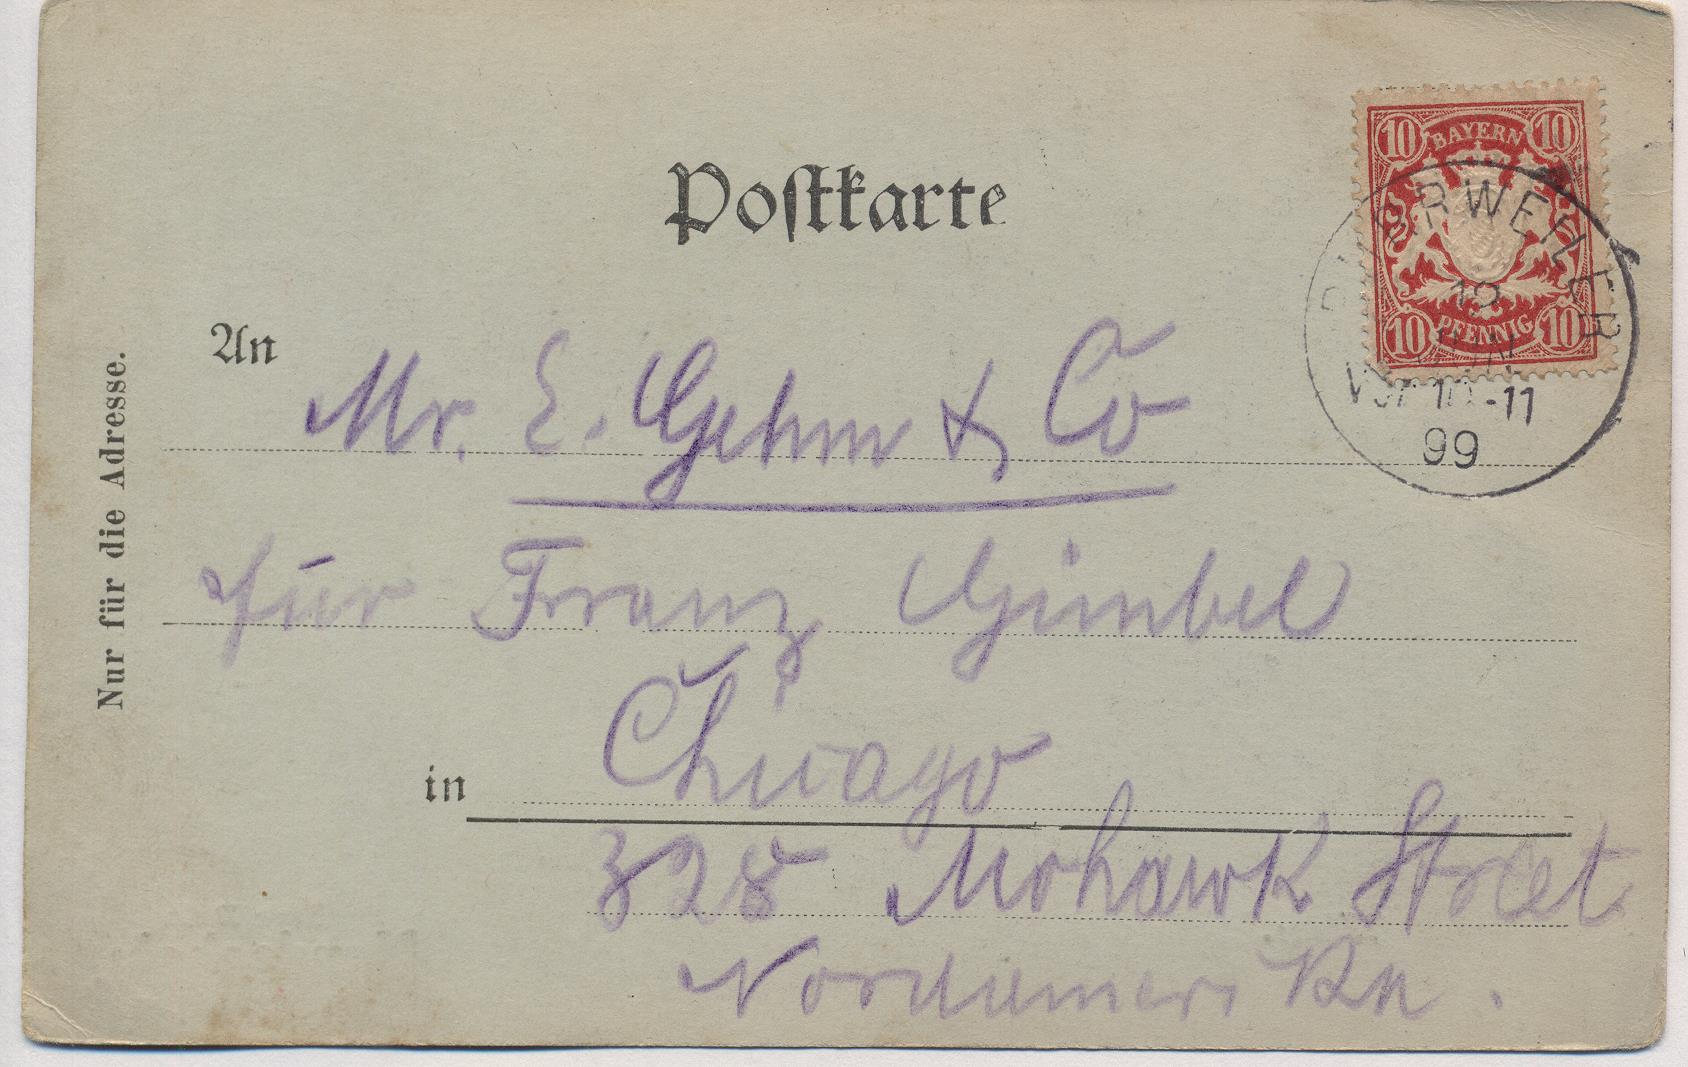 Postkarte
10 BAYERN 10
10 PFENNIG 10
12
99
An
Mr. E. Gehm & Co
für Franz Gimbel
in
Chicago
328 Mohawk Street
Nordameri
Nur für die Adresse.